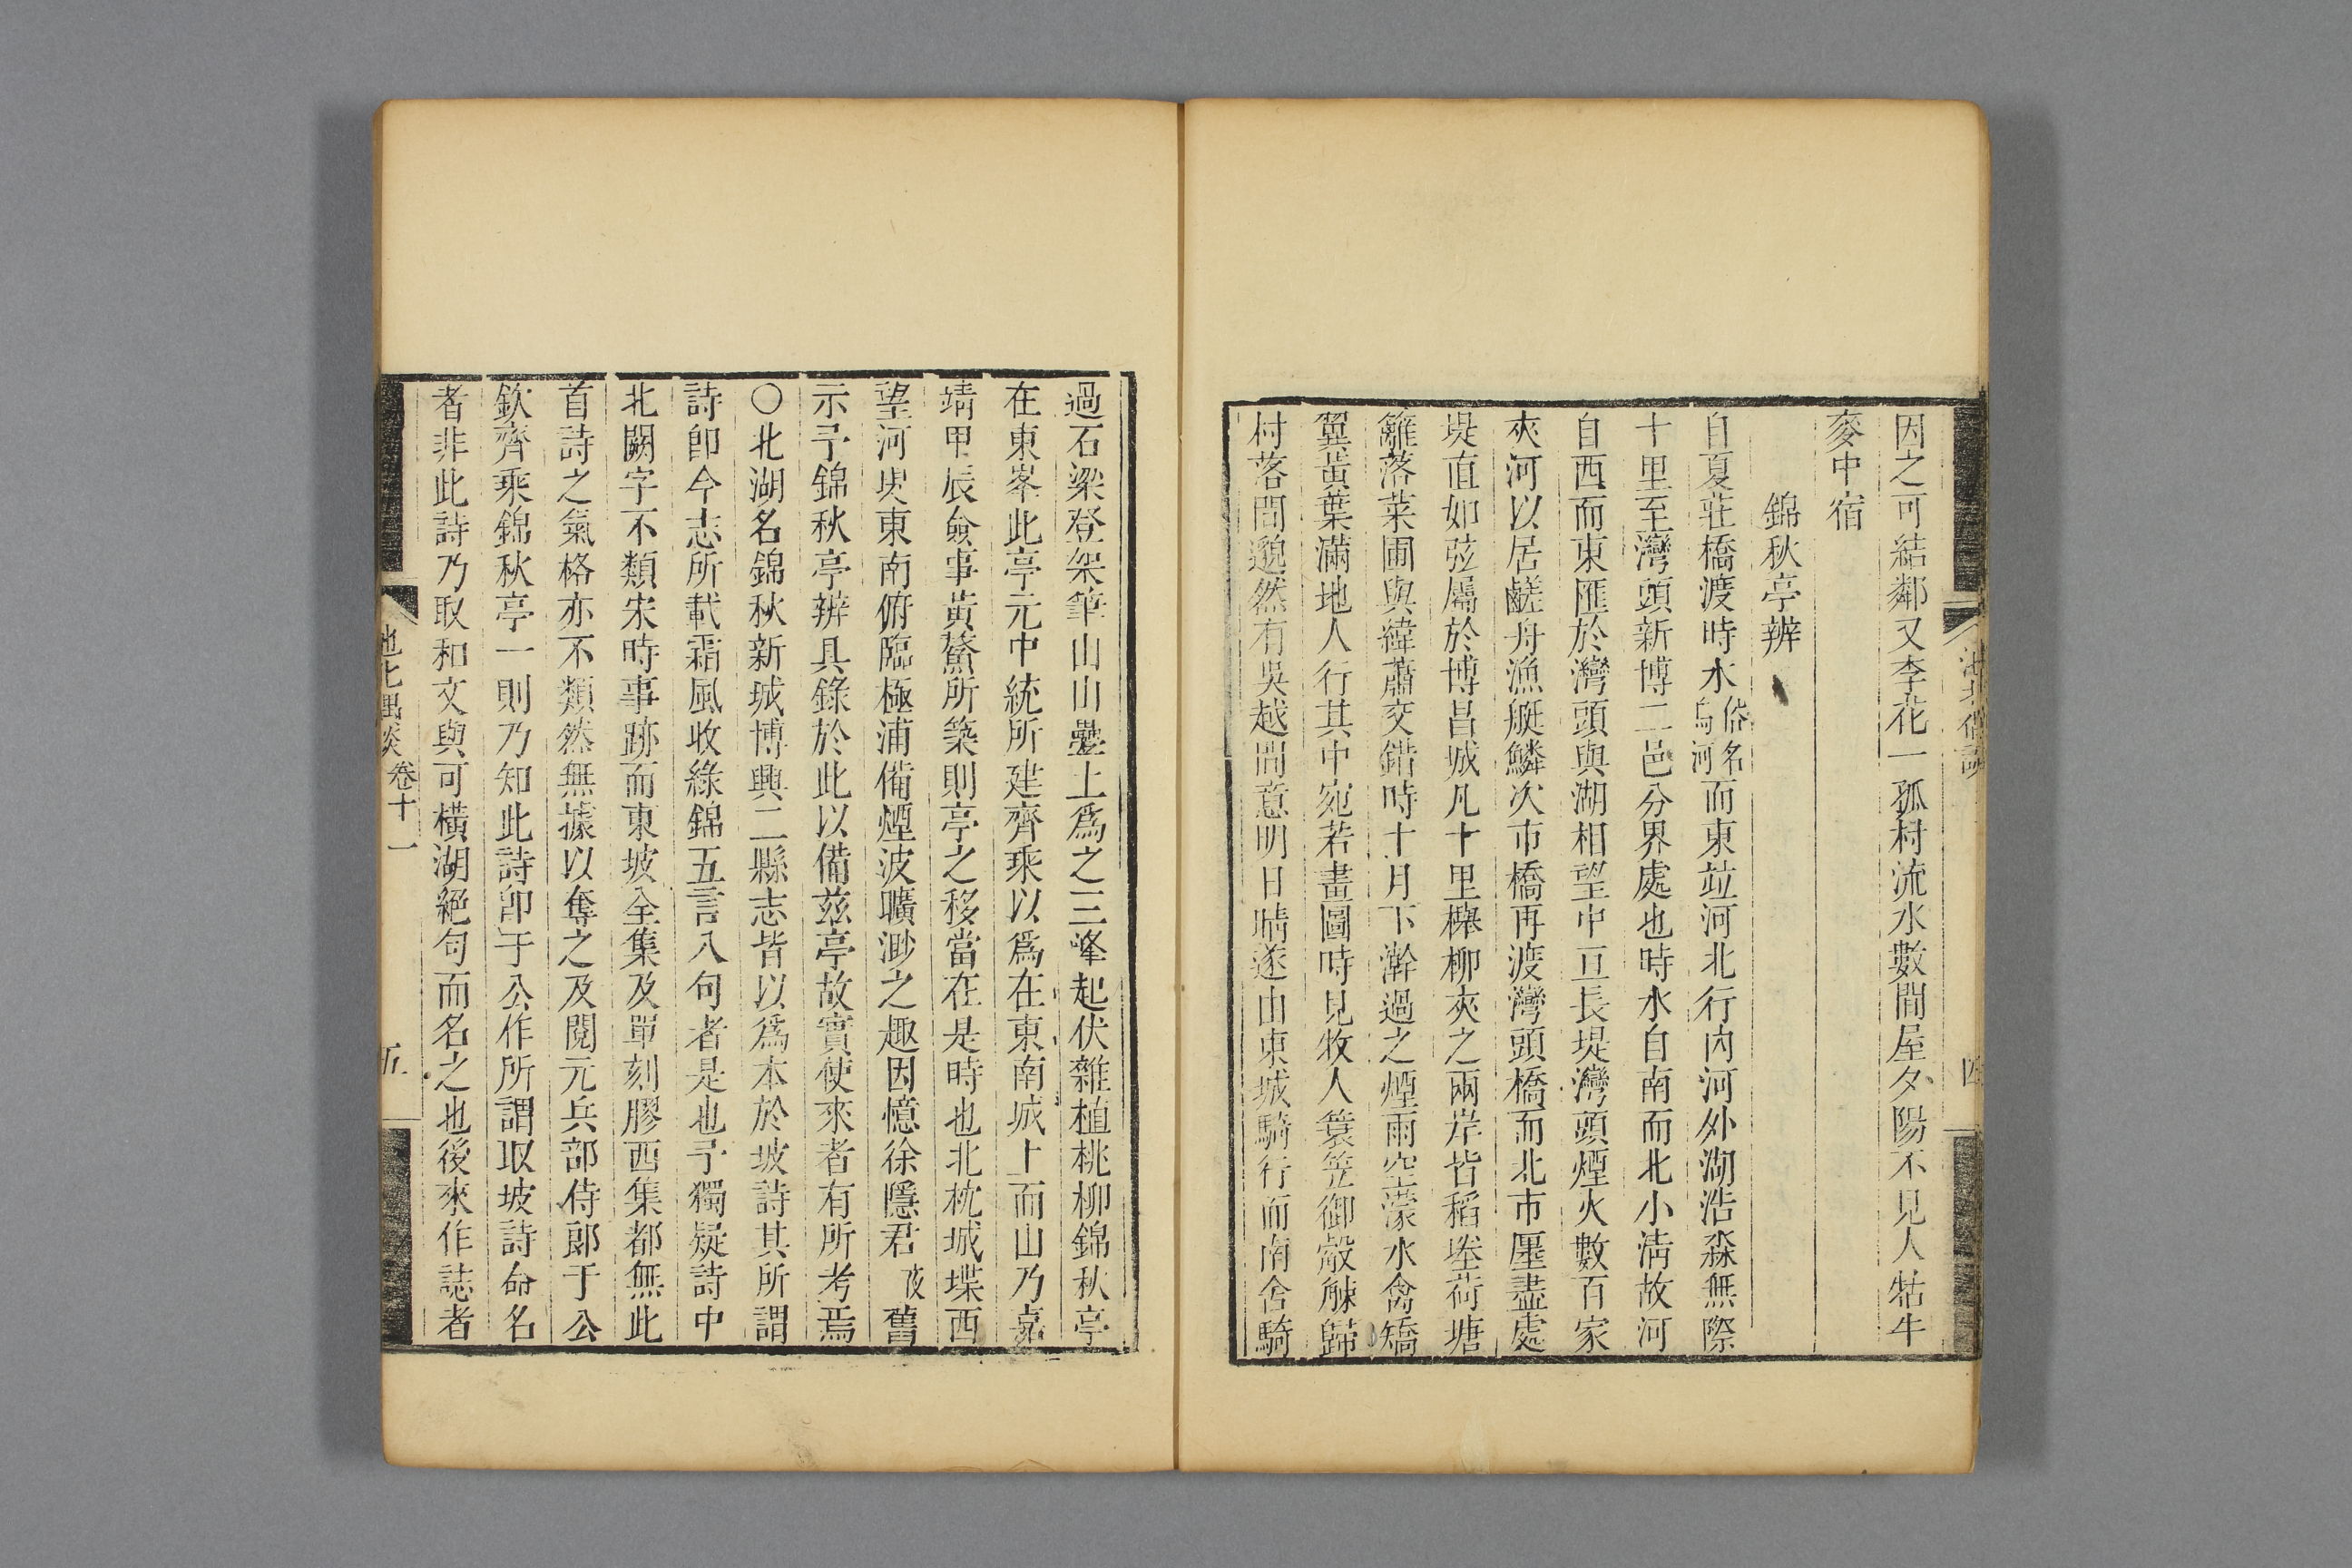 因之可結鄰又李花一孤村流水數間屋夕陽不見人牯牛
麥中宿
錦秋亭辨
自夏莊橋渡時水俗名烏河而東竝河北行內河外湖浩淼無際
十里至灣頭新博二邑分界處也時水自南而北小清故河
自西而東匯於灣頭與湖相望中亘長堤灣頭煙火數百家
夾河以居鹺舟漁艇鱗次市橋再渡灣頭橋而北市廛盡處
堤直如弦屬於博昌城凡十里櫸柳夾之兩岸皆稻塍荷塘
籬落菜圃與緯蕭交錯時十月下澣過之煙雨空濛水禽矯
翼黃葉滿地人行其中宛若畫圖時見牧人簑笠御觳觫歸
村落間邈然有吳越間意明日晴遂由東城騎行而南舍騎
池北偶談
四
過石梁登架筆山山壘土爲之三峰起伏雜植桃柳錦秋亭
在東峯此亭元中統所建齊乘以爲在東南城上而山乃嘉
靖甲辰僉事黃鰲所築則亭之移當在是時也北枕城堞西
望河㙜東南俯臨極浦備煙波曠渺之趣因憶徐隱君夜舊
示予錦秋亭辨具錄於此以備茲亭故實使來者有所考焉
○北湖名錦秋新城博興二縣志皆以爲本於坡詩其所謂
詩卽今志所載霜風收綠錦五言八句者是也予獨疑詩中
北闕字不類宋時事跡而東坡全集及單刻膠西集都無此
首詩之氣格亦不類然無據以奪之及閱元兵部侍郞于公
欽齊乘錦秋亭一則乃知此詩卽于公作所謂取坡詩命名
者非此詩乃取和文與可橫湖絕句而名之也後來作誌者
池北偶談 卷十一
五